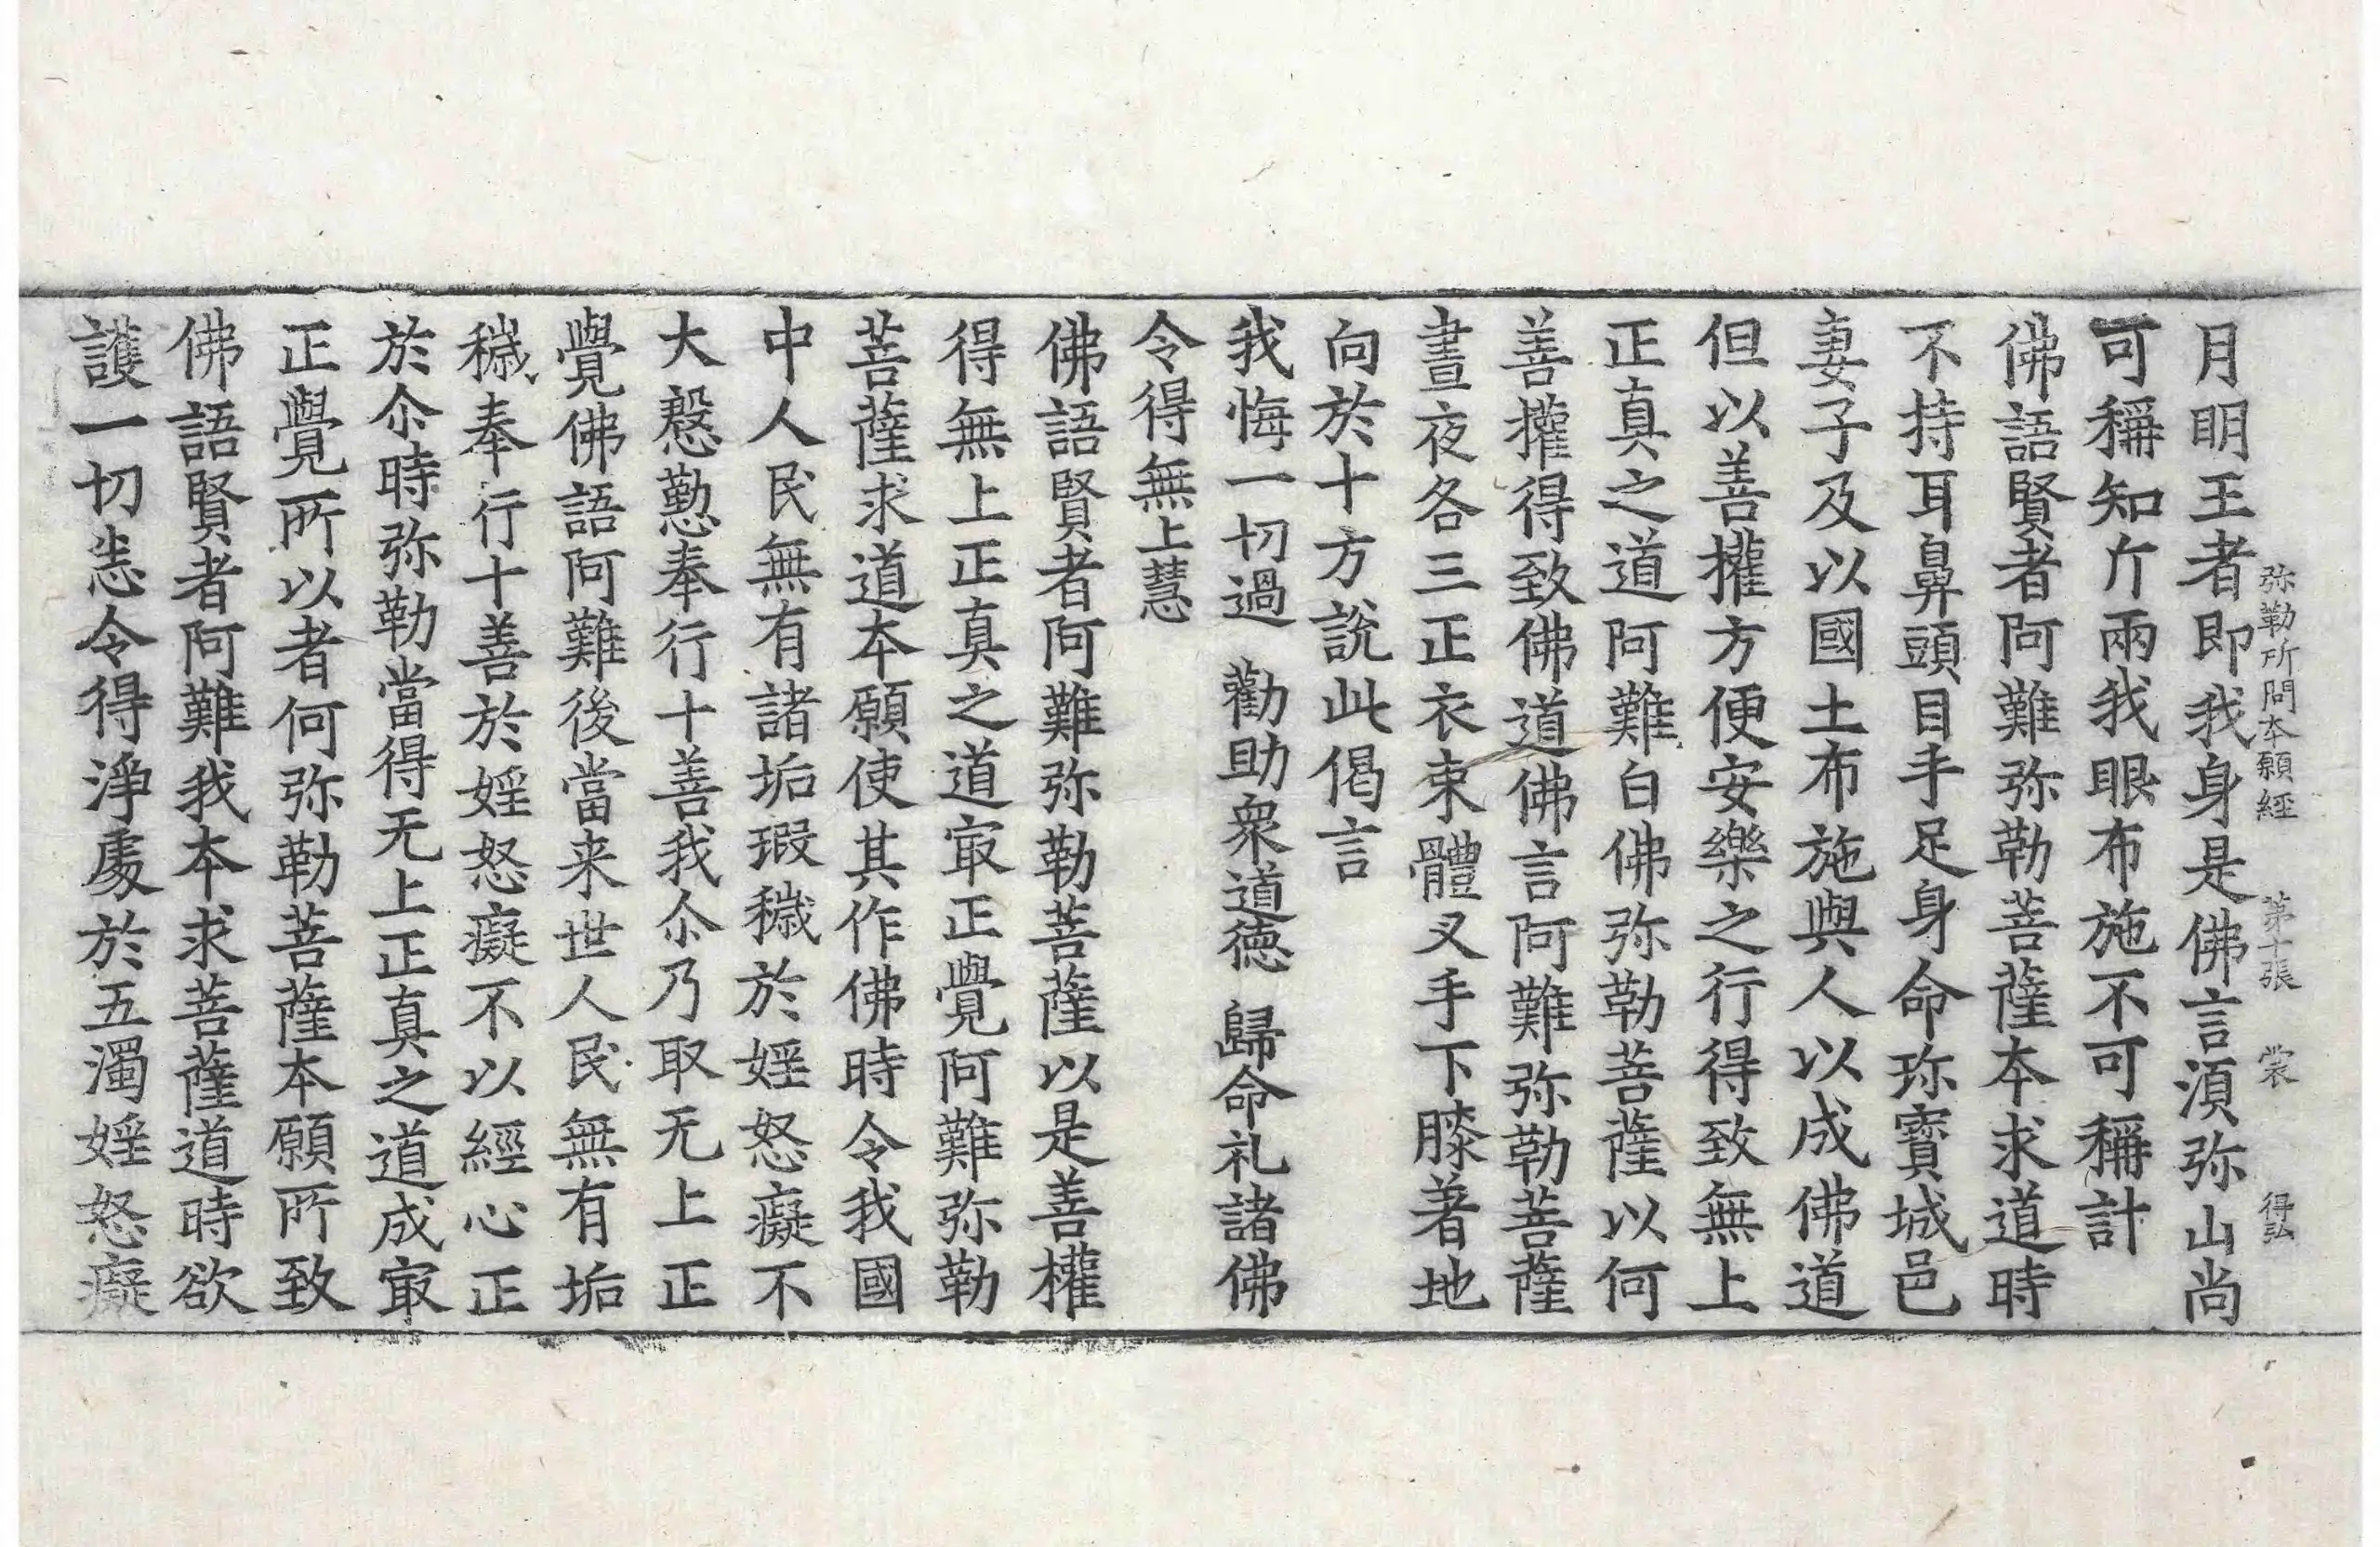 弥勒所問本願經 第十張 裳 得弘
月明王者即我身是佛言湏弥山尚
可稱知斤兩我眼布施不可稱計
佛語賢者阿難弥勒菩薩本求道時
不持耳鼻頭目手足身命珎寳城邑
妻子及以國土布施與人以成佛道
但以善權方便安樂之行得致無上
正真之道阿難白佛弥勒菩薩以何
善權得致佛道佛言阿難弥勒菩薩
晝夜各三正衣束體叉手下膝著地
向於十方說此偈言
我悔一切過 勸助衆道德 歸命礼諸佛
令得無上慧
佛語賢者阿難弥勒菩薩以是善權
得無上正真之道㝡正覺阿難弥勒
菩薩求道本願使其作佛時令我國
中人民無有諸垢瑕穢於婬怒癡不
大慇懃奉行十善我尒乃取无上正
覺佛語阿難後當来世人民無有垢
穢奉行十善於婬怒癡不以經心正
於尒時弥勒當得无上正真之道成㝡
正覺所以者何弥勒菩薩本願所致
佛語賢者阿難我本求菩薩道時欲
護一切悉令得淨處於五濁婬怒癡